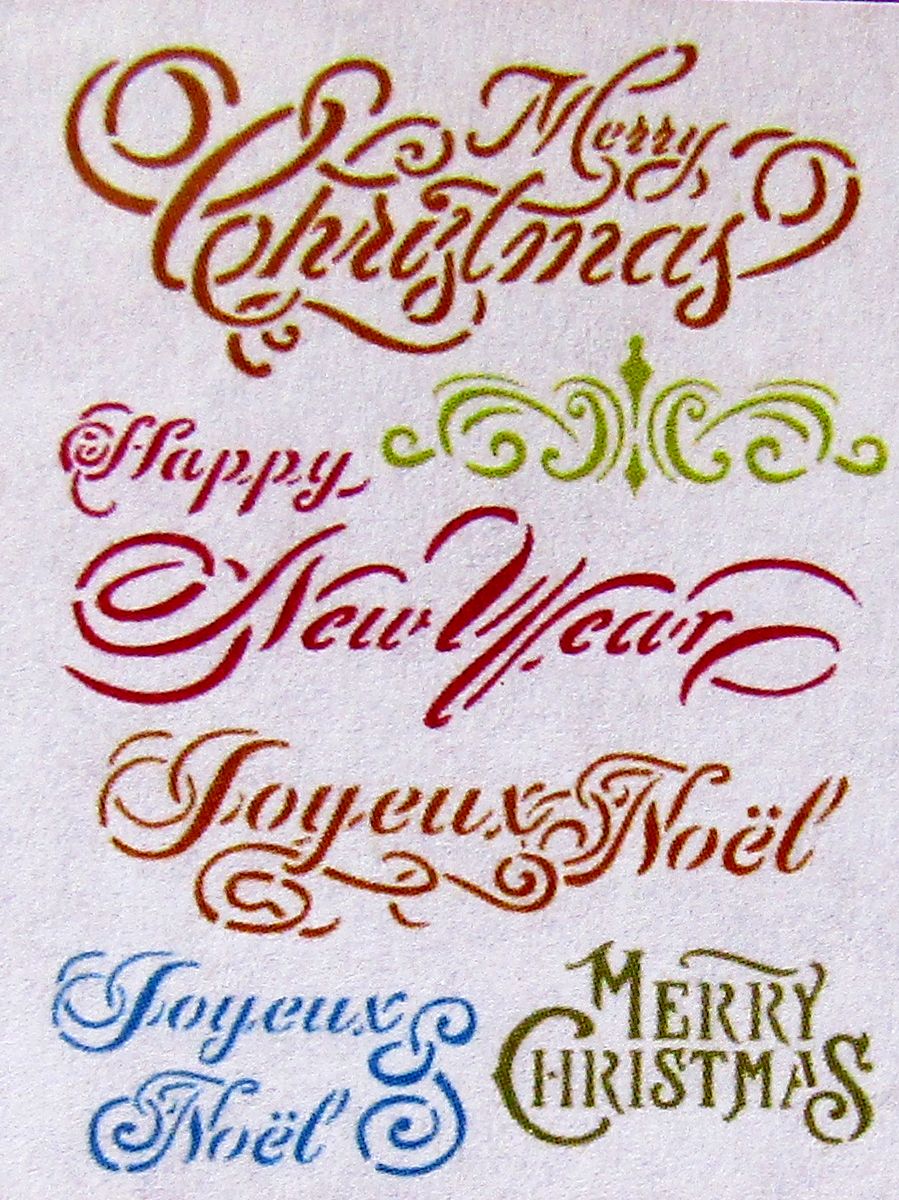 Merry
Christmas
Happy
New Year
Joyeux Noël
Joyeux
Noël
MERRY
CHRISTMAS